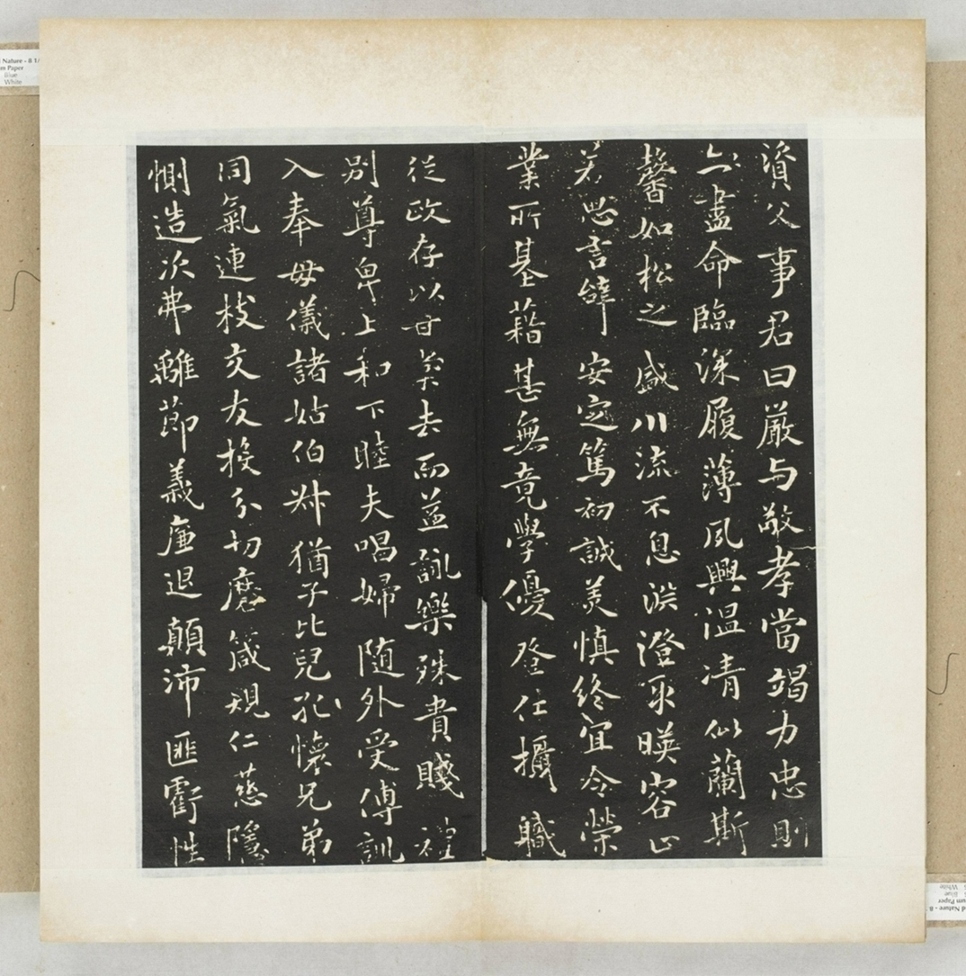 資父事君曰嚴与敬孝當竭力忠則
盡命臨深履薄夙興温凊似蘭斯
馨如松之盛川流不息淵澄取暎容止
若思言辞安定篤初誠美慎終宜令榮
業所基藉甚無竟學優登仕攝職
從政存以甘棠去而益詠樂殊貴賤禮
別尊卑上和下睦夫唱婦隨外受傅訓
入奉母儀諸姑伯叔猶子比兒孔懷兄弟
同氣連枝交友投分切磨箴規仁慈隱
惻造次弗離節義廉退顛沛匪虧性
Nature - 8
Paper
Blue
White